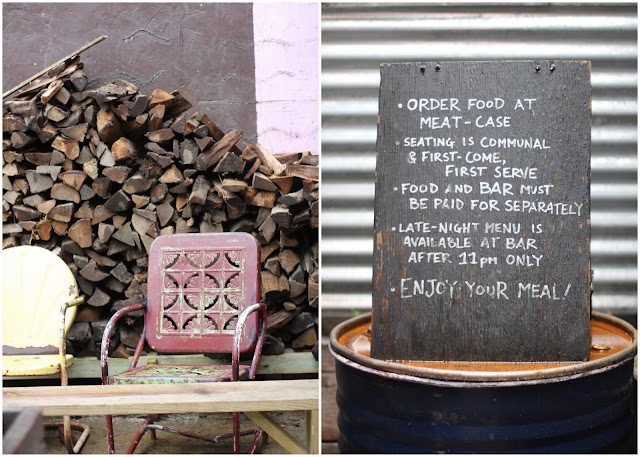 • ORDER FOOD AT
MEAT-CASE
• SEATING IS COMMUNAL
& FIRST-COME,
FIRST SERVE
• FOOD AND BAR MUST
BE PAID FOR SEPARATELY
• LATE-NIGHT MENU IS
AVAILABLE AT BAR
AFTER 11pm ONLY
• ENJOY YOUR MEAL!